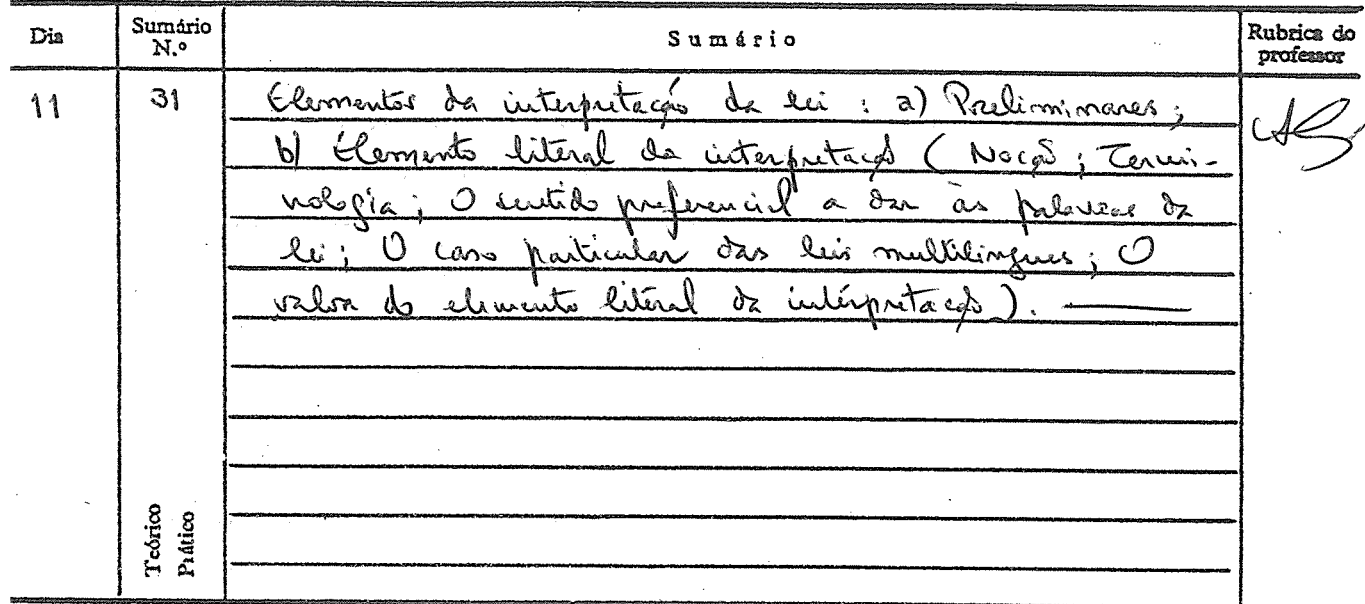 Dia Sumário N.º Sumário Rubrica do professor
11 31 Elementos da interpretação da lei : a) Preliminares ;
b) Elemento literal da interpretação ( Noção ; Termi-
nologia ; O sentido preferencial a dar às palavras da
lei ; O caso particular das leis multilingues ; O
valor do elemento literal da interpretação ). —
Teórico
Prático